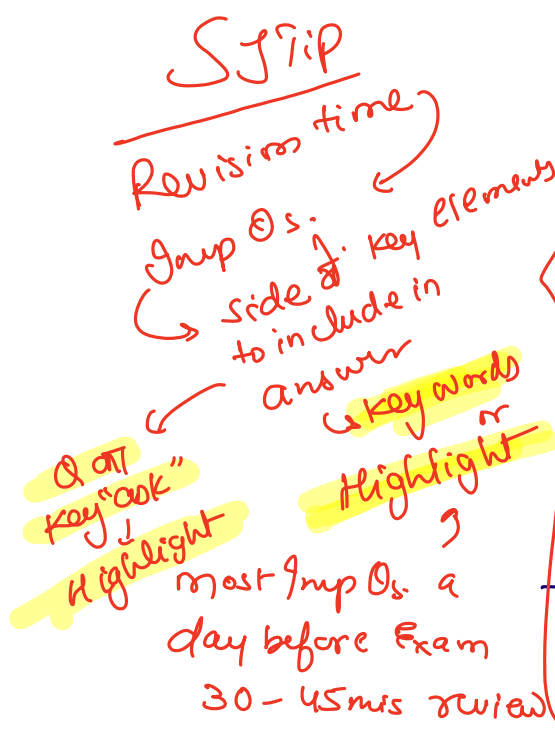 SJ Tip
Revision time
Imp Qs.
side of key elements
to include in
answer
Key words
or
Highlight
Q की
Key "ask"
Highlight
most Imp Qs. a
day before Exam
30-45 mis review